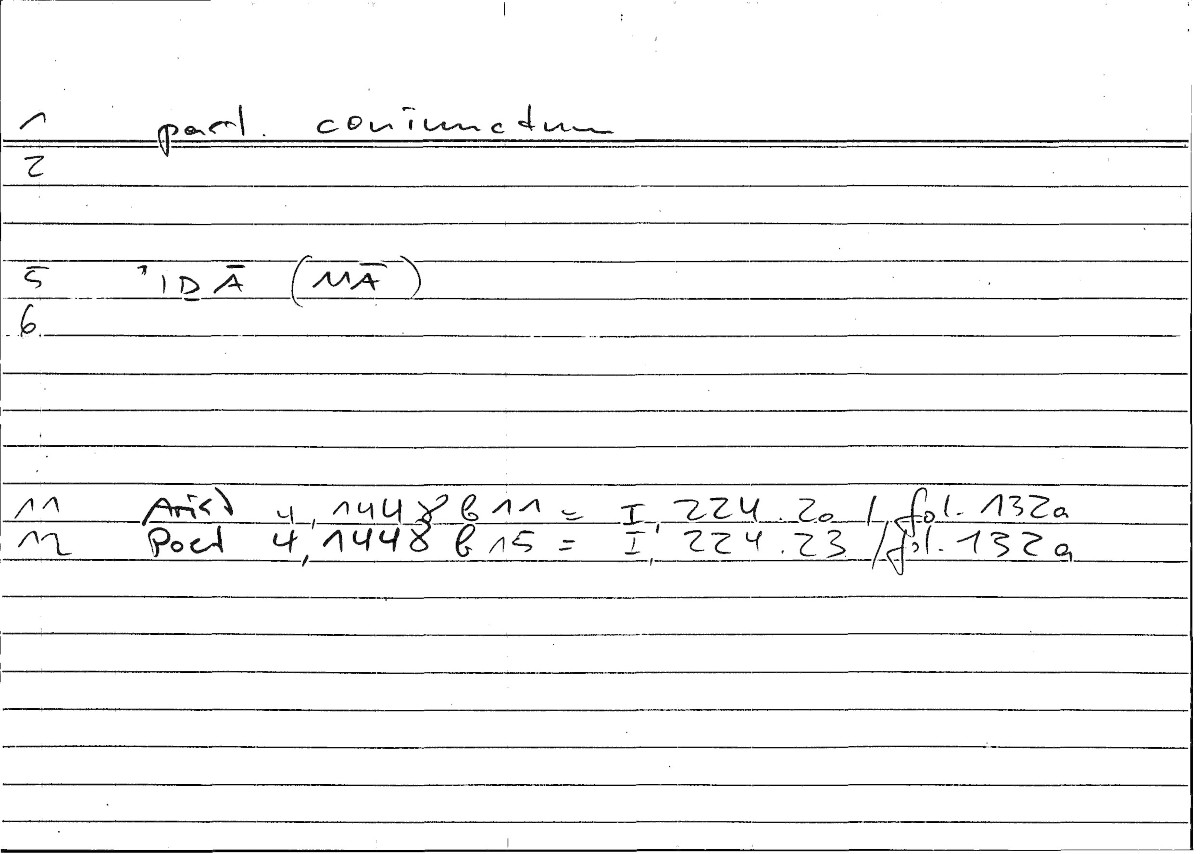 1 part. coniunctum
2
5 ʾIḎĀ (MĀ)
6.
11 Arist 4,1448b11 = I,224.20 / fol. 132a
12 Poet 4,1448b15 = I,224.23 /fol. 132a